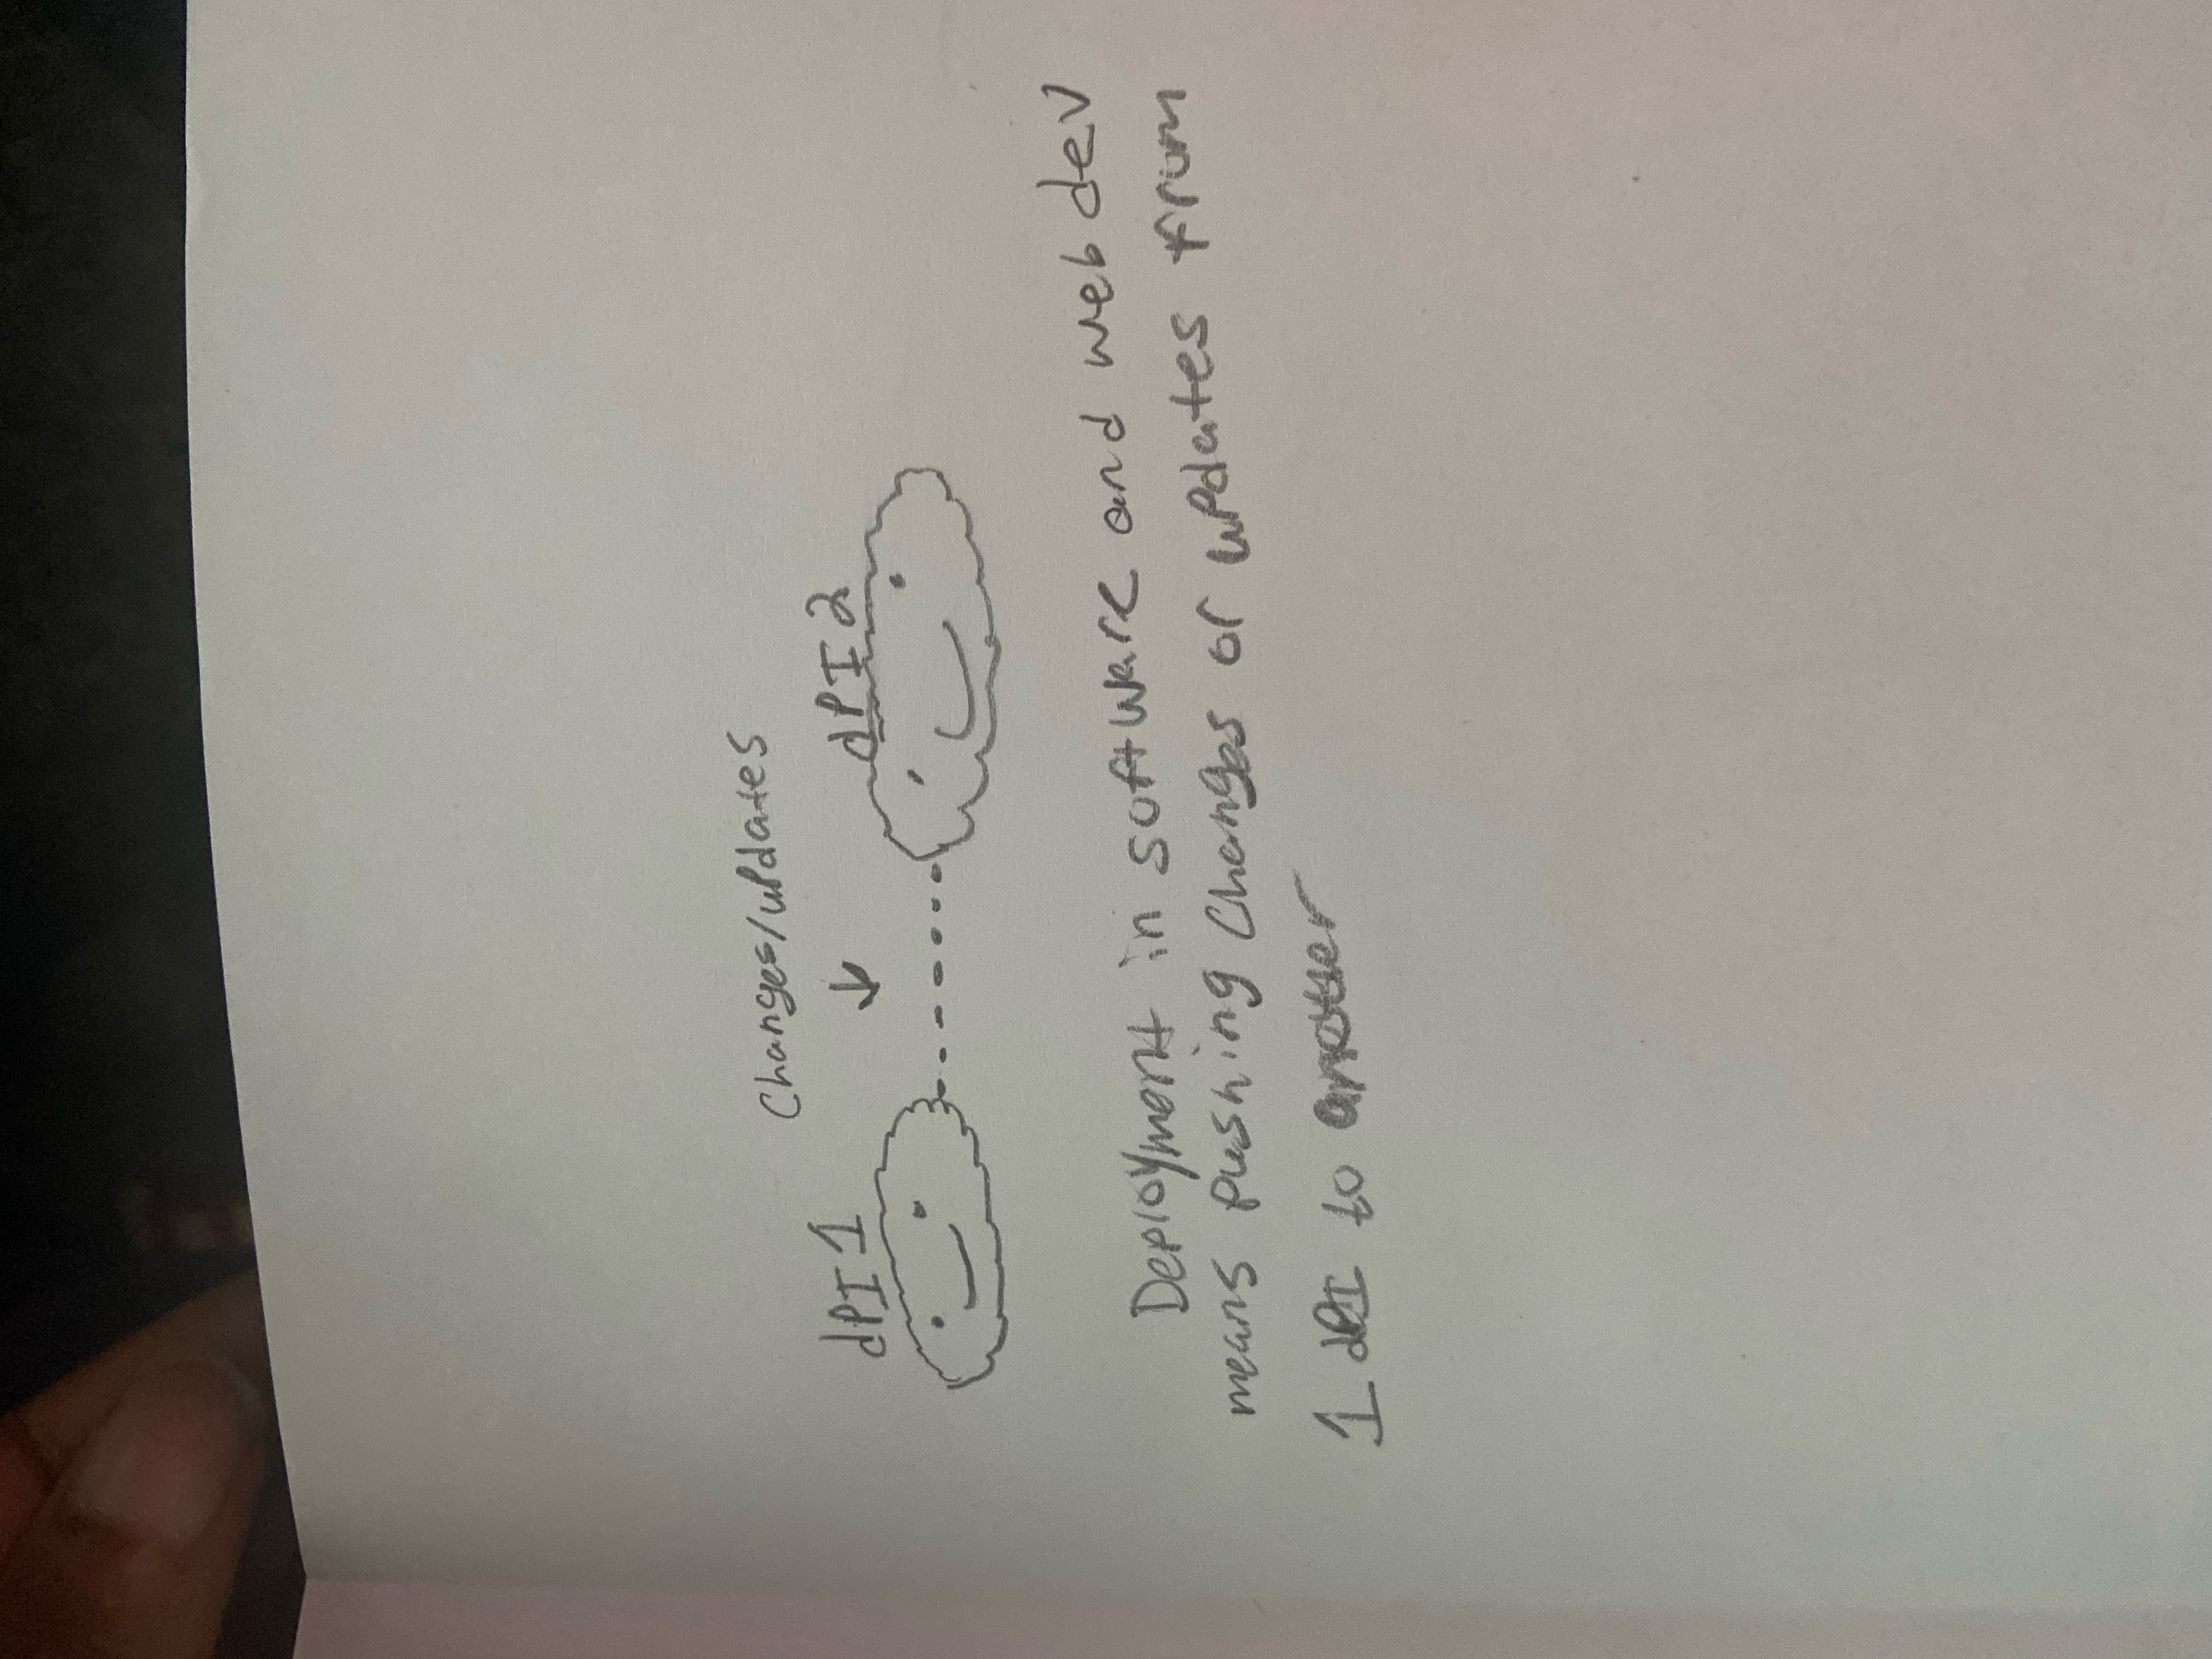 Changes/updates
dPI 1
dPI 2
Deployment in software and web dev
means pushing Changes or updates from
1 dPI to another